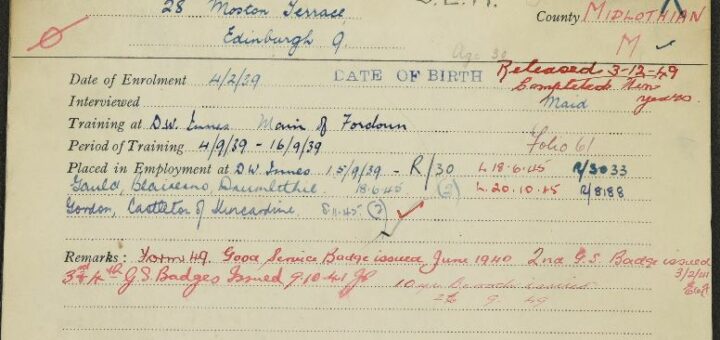 28 Moston Terrace,
County MIDLOTHIAN
Edinburgh 9.
M ✓
Age 30
Date of Enrolment 4/2/39 DATE OF BIRTH Released 3-12-49
Completed Ten years
Interviewed Maid
Training at D.W. Innes Main of Fordoun
Period of Training 4/9/39 - 16/9/39 Folio 61
Placed in Employment at D.W Innes 15/9/39 - R/30 L.18.6.45 R/3033
Gauld, Drumlithie. 18.6.45 (2) L.20.10.45 R/8188
Gordon, Castleton of Kincardine 8.11.45 (3) ✓
Remarks: Form 49. Good Service Badge issued June 1940 2nd G.S. Badge issued
3/2/41
3rd & 4th G.S Badges Issued 9-10-41
10 yr
9 49